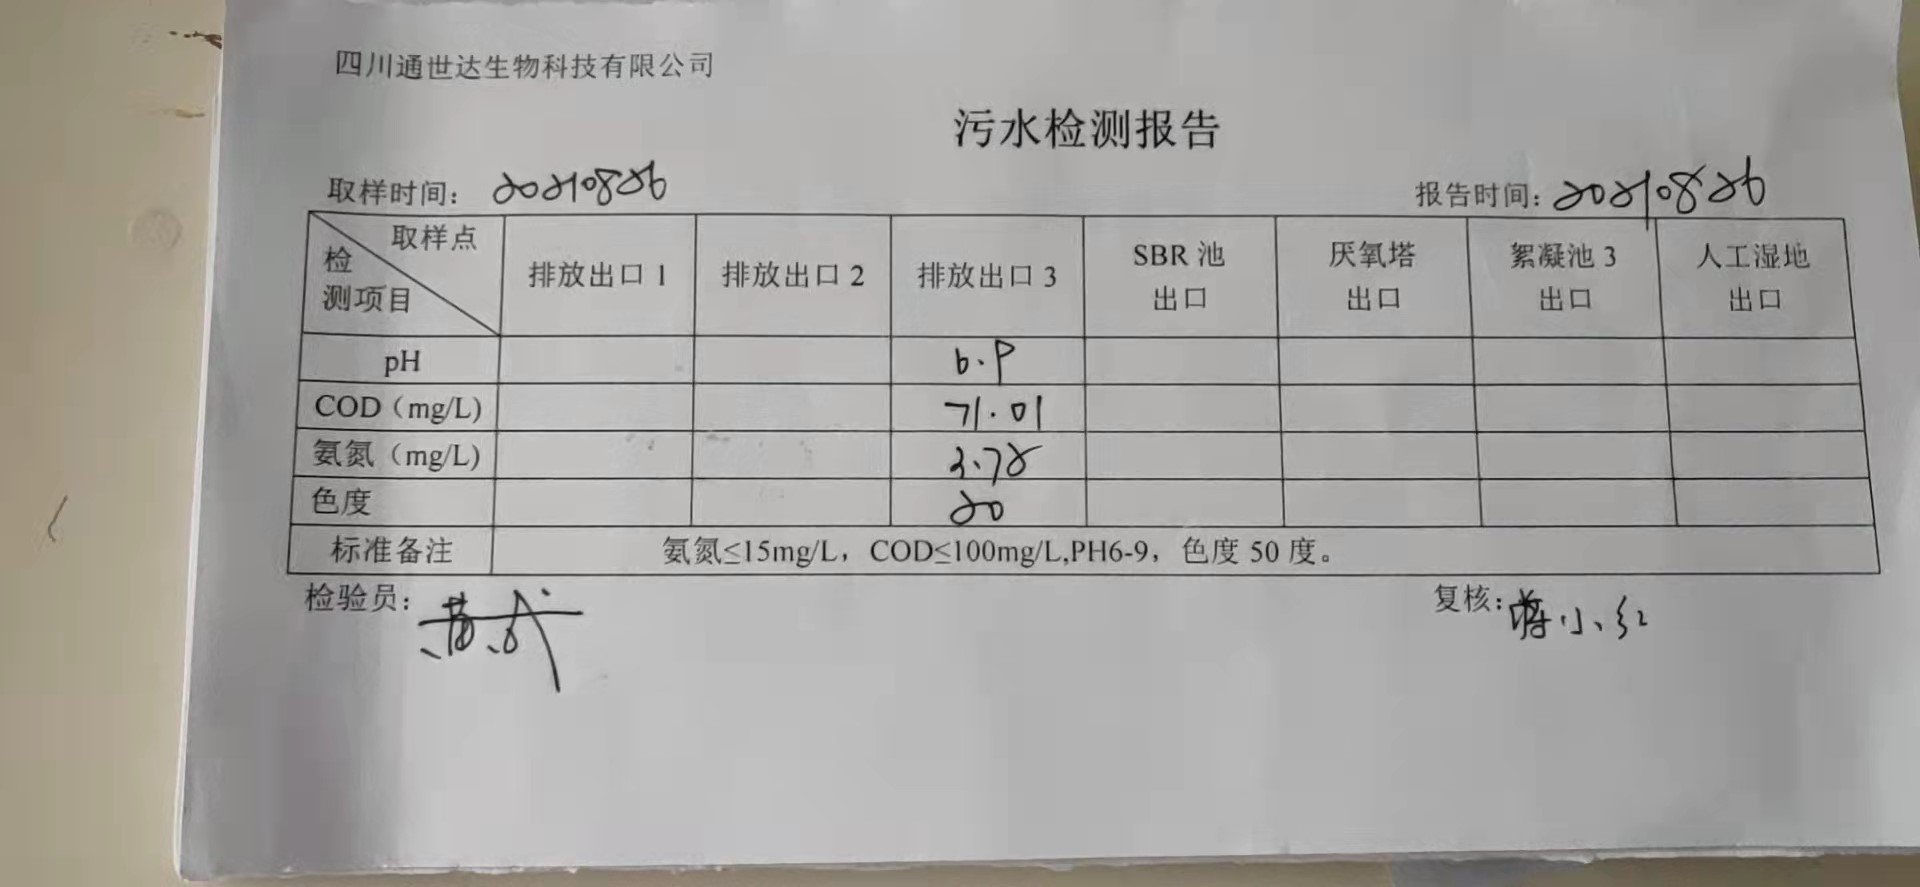 四川通世达生物科技有限公司
污水检测报告
取样时间： 20210826 报告时间：20210826
取样点 检测项目 排放出口 1 排放出口 2 排放出口 3 SBR 池出口 厌氧塔出口 絮凝池 3 出口 人工湿地出口
pH 6.9
COD（mg/L) 71.01
氨氮（mg/L) 3.78
色度 20
标准备注 氨氮≤15mg/L，COD≤100mg/L,PH6-9，色度 50 度。
检验员： 复核：蒋小红